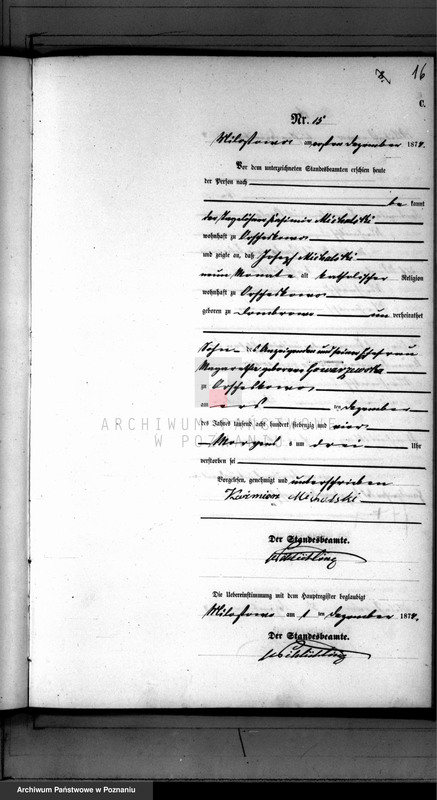 16
C.
Nr. 15
Miloslawo am ersten Dezember 1874.
Vor dem unterzeichneten Standesbeamten erschien heute
der Person nach
be kannt
der Tagelöhner Kasimir Michalski
wohnhaft zu
und zeigte an, daß Joseph Michalski
neun Monate alt katholischer Religion
wohnhaft zu
geboren zu Dombrowo un verheirathet
Sohn des Anzeigenden und seiner Ehefrau
geborene
zu
am ers ten Dezember
des Jahres tausend acht hundert siebenzig und vier
Morgens um drei Uhr
verstorben sei
Vorgelesen, genehmigt und unterschrieben
Kazmierz Michalski
Der Standesbeamte.
Die Uebereinstimmung mit dem Hauptregister beglaubigt
am 1 ten Dezember 1874.
Der Standesbeamte.
ARCHIWUM PAŃSTWOWE
W POZNANIU
Archiwum Państwowe w Poznaniu